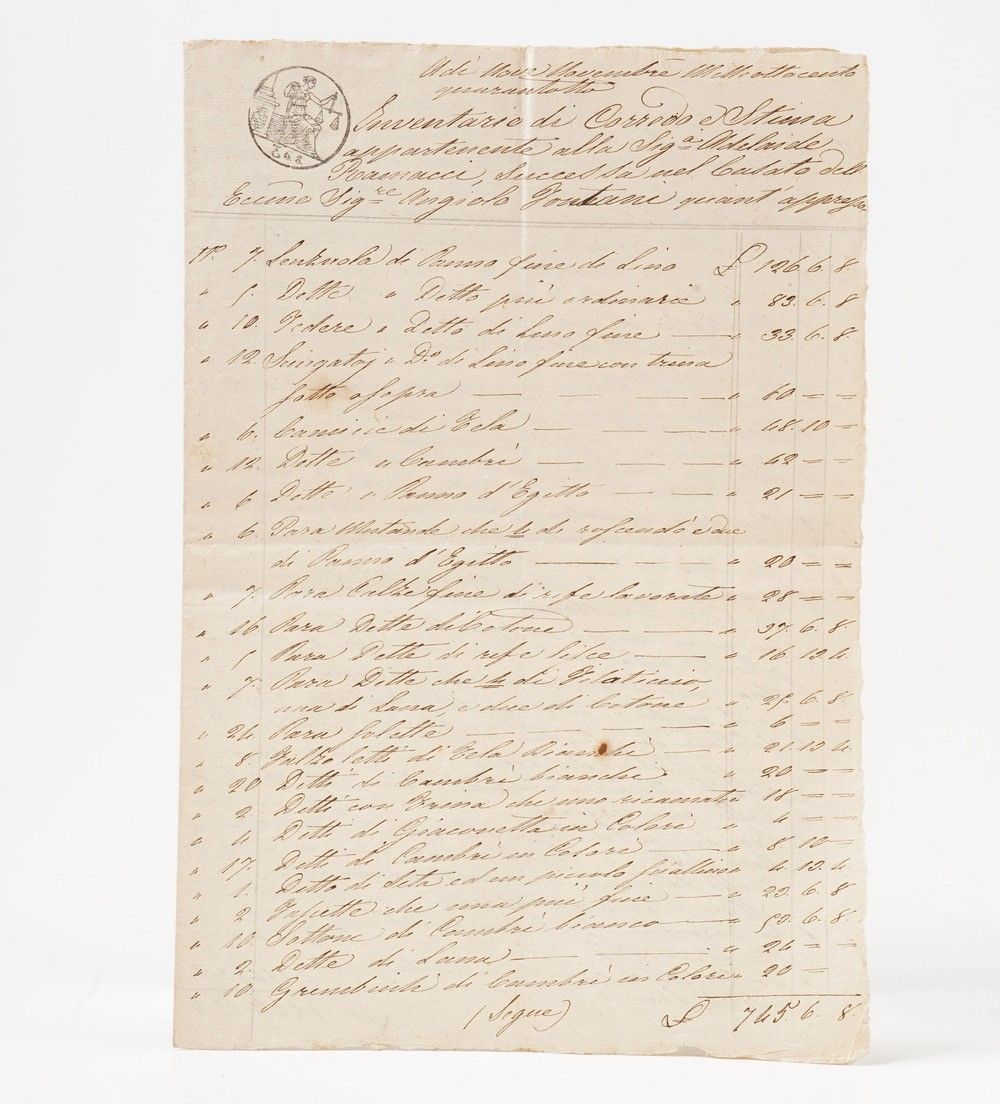 Adì Novembre Mille ottocento
quarantotto
Inventario di Corredo e Stima
appartenente alla Sig.ª Adelaide
Ramacci, successa nel Casato dell
Eccmo Sig.re Angiolo Fontani quant'appresso
N.º 7. Lenzuola di Panno fine di Lino £ 126. 6. 8
" 5. Dette " Detto più ordinarie " 83. 6. 8
" 10. Federe " Detto di Lino fine — " 33. 6. 8.
" 12. Sciugatoj " D.º di Lino fine con trina
sotto e sopra — — — — " 60 = =
" 6. Camicie di Tela — — — " 48. 10 =
" 12. Dette " Cambrì — — — " 42 = =
" 6 Dette " Panno d'Egitto — — " 21 = =
" 6. Para Mutande che 4 di e due
di Panno d'Egitto — — — " 20 = =
" 7. Para Calze fine di refe lavorate " 28 = =
" 16. Para Dette di Cotone — — " 37. 6. 8
" 5 Para Dette di refe lisce — " 16. 13. 4
" 7. Para Dette che 4 di Filaticcio,
una di Lana, e due di Cotone " 25. 6. 8.
" 24 Para Solette — — — — " 6 = =
" 8. Fazzoletti di Tela Bianchi — " 21. 13. 4
" 20 Detti di Cambrì bianchi " 20 = =
" 2. Detti con Trina che uno ricamato " 18 = =
" 4 Detti di Giaconetta in Colori " 4 = =
" 17. Detti di Cambrì in Colori — " 8 10 =
" 1. Detto di Seta ed un piccolo " 4. 13. 4
" 2 che una più fine — " 23. 6. 8
" 10. Sottane di Cambrì bianco — " 53. 6. 8.
" 2. Dette di Lana — — — " 24 = =
" 10. Grembiuli di Cambrì in Colori " 20 = =
(Segue) £ 745. 6. 8.